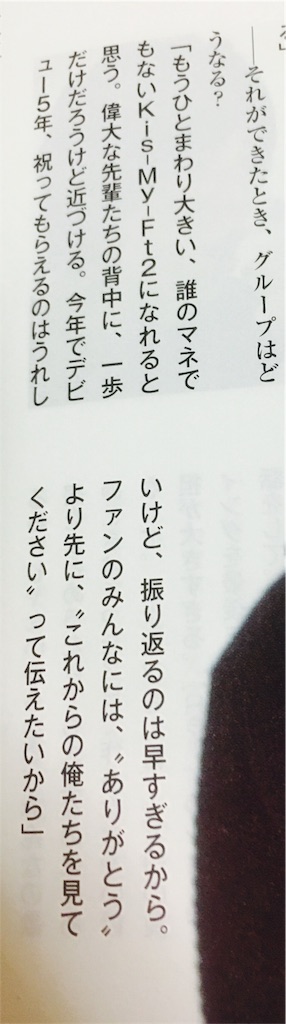 る」
――それができたとき、グループはど
うなる？
「もうひとまわり大きい、誰のマネで
もないKis-My-Ft2になれると
思う。偉大な先輩たちの背中に、一歩
だけだろうけど近づける。今年でデビ
ュー5年、祝ってもらえるのはうれし
いけど、振り返るのは早すぎるから。
ファンのみんなには、〝ありがとう〟
より先に、〝これからの俺たちを見て
ください〟って伝えたいから」